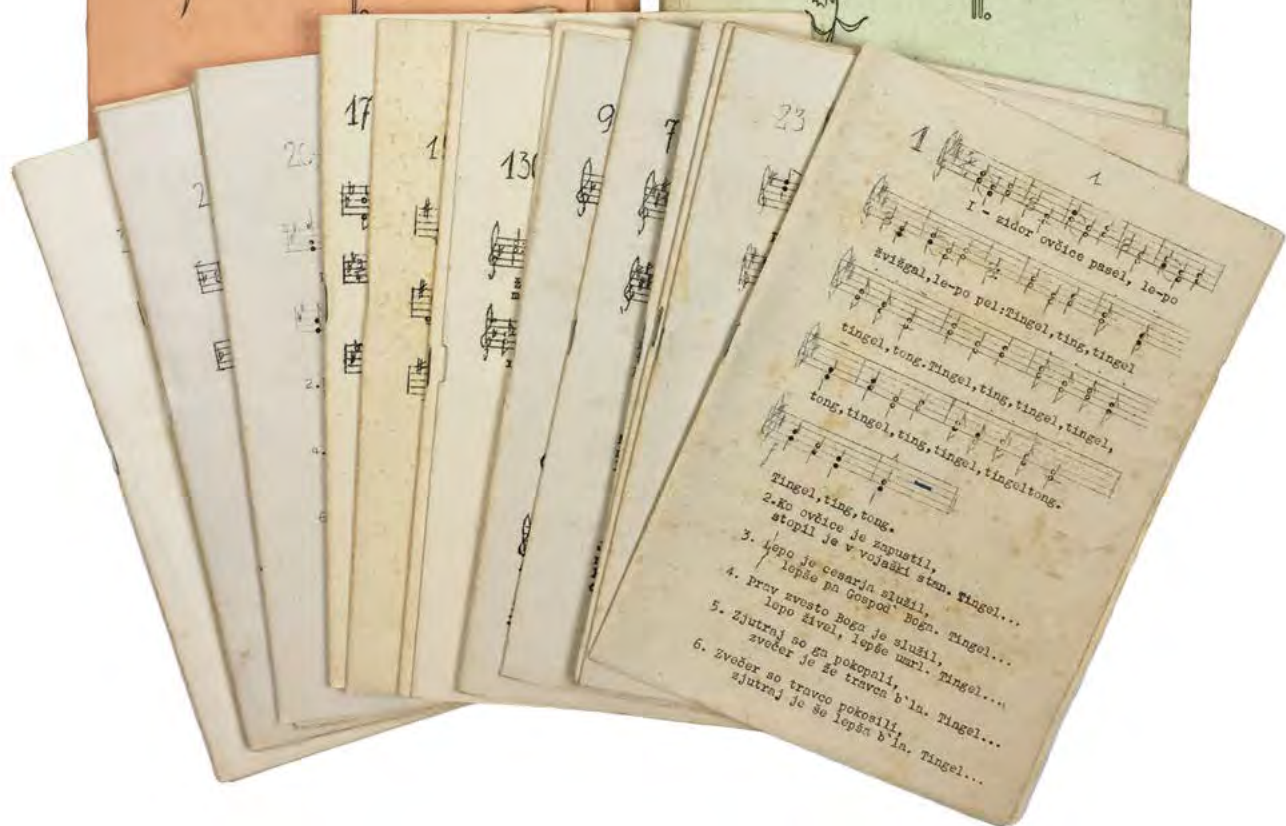 17
130
9
7
23
1
1
I - zidor ovčice pasel, le-po
žvižgal,le-po pel:Tingel,ting,tingel
tingel,tong.Tingel,ting,tingel,tingel,
tong,tingel,ting,tingel,tingeltong.
Tingel,ting,tong.
2.Ko ovčice je zapustil,
stopil je v vojaški stan. Tingel...
3. Lepo je cesarja služil,
lepše pa Gospod` Boga. Tingel...
4. Prav zvesto Boga je služil,
lepo živel, lepše umrl. Tingel...
5. Zjutraj so ga pokopali,
zvečer je že travca b`la. Tingel...
6. Zvečer so travco pokosili,
zjutraj je še lepša b`la. Tingel...